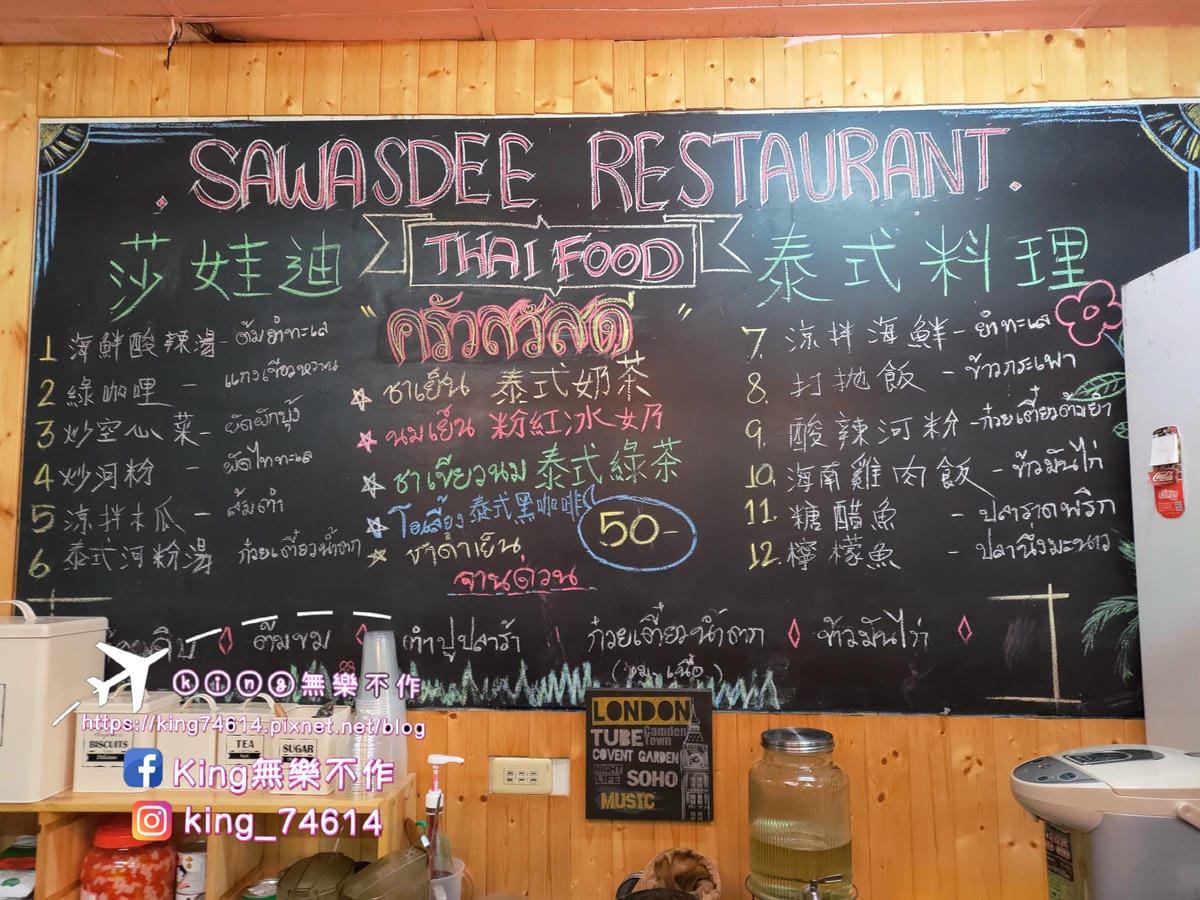 SAWASDEE RESTAURANT
莎娃迪 THAI FOOD 泰式料理
"ครัวสวัสดี"
1 海鮮酸辣湯 - ต้มยำทะเล
2 綠咖哩 - แกงเขียวหวาน
3 炒空心菜 - ผัดผักบุ้ง
4 炒河粉 - ผัดไททะเล
5 涼拌木瓜 - ส้มตำ
6 泰式河粉湯 ก๋วยเตี๋ยวน้ำตก
ชาเย็น 泰式奶茶
นมเย็น 粉紅冰奶
ชาเขียวนม 泰式綠茶
โอเลี้ยง 泰式黑咖啡
ชาดำเย็น
50-
จานด่วน
7. 涼拌海鮮 - ยำทะเล
8. 打拋飯 - ข้าวกระเพา
9. 酸辣河粉 - ก๋วยเตี๋ยวต้มยำ
10. 海南雞肉飯 - ข้าวมันไก่
11. 糖醋魚 - ปลาราดพริก
12. 檸檬魚 - ปลานึ่งมะนาว
ต้มขม ตำปูปลาร้า ก๋วยเตี๋ยวน้ำตก ข้าวมันไก่
king無樂不作
https://king74614.pixnet.net/blog
King無樂不作
king_74614
BISCUITS
TEA
SUGAR
LONDON
TUBE Camden Town
COVENT GARDEN
NIGHT LIFE SOHO
MUSIC
Coca-Cola